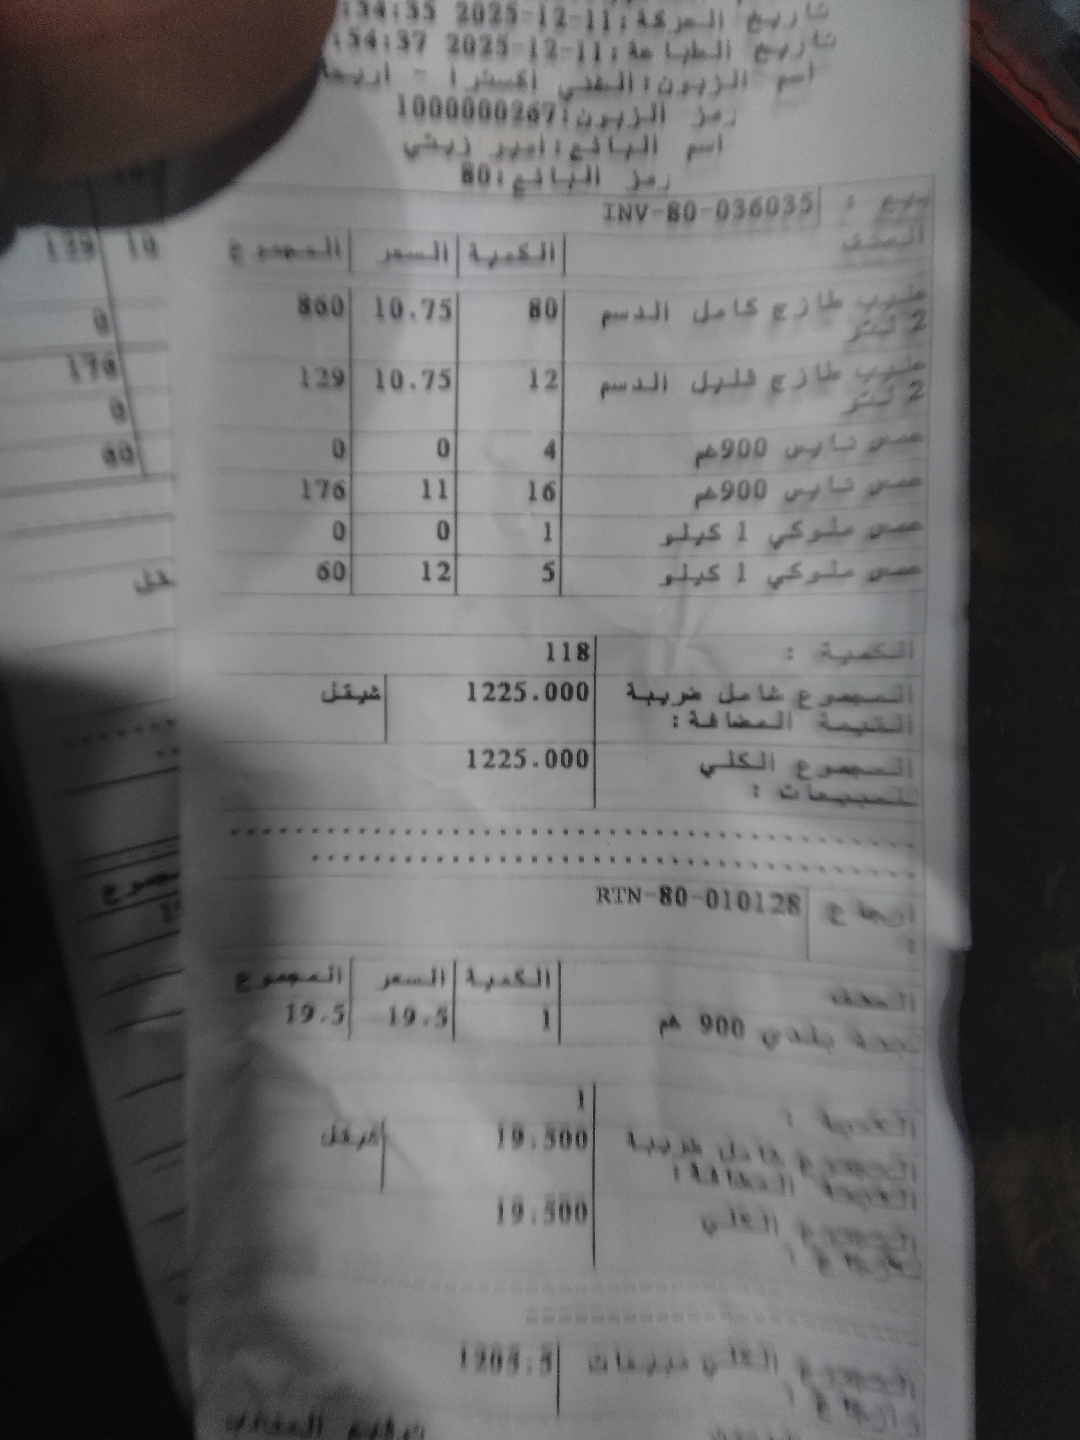 تاريخ الحركة: 11-12-2025 :54:35
تاريخ الطباعة: 11-12-2025 :54:37
اسم الزبون: الفني اكسترا - اريحا
رمز الزبون: 1000000267
اسم البائع: امير زيتي
رمز البائع: 80
بيع : INV-80-036035
الصنف الكمية السعر المجموع
حليب طازج كامل الدسم 80 10.75 860
2 لتر
حليب طازج قليل الدسم 12 10.75 129
2 لتر
حمص نايس 900غم 4 0 0
حمص نايس 900غم 16 11 176
حمص ملوكي 1 كيلو 1 0 0
حمص ملوكي 1 كيلو 5 12 60
الكمية : 118
المجموع شامل ضريبة 1225.000 شيقل
القيمة المضافة :
المجموع الكلي 1225.000
للمبيعات :
ارجاع RTN-80-010128
:
الصنف الكمية السعر المجموع
بلدي 900 غم 1 19.5 19.5
الكمية : 1
المجموع شامل ضريبة 19.500 شيقل
القيمة المضافة :
المجموع الكلي 19.500
للارجاع :
المجموع الكلي مبيعات 1205.5
وارجاع :